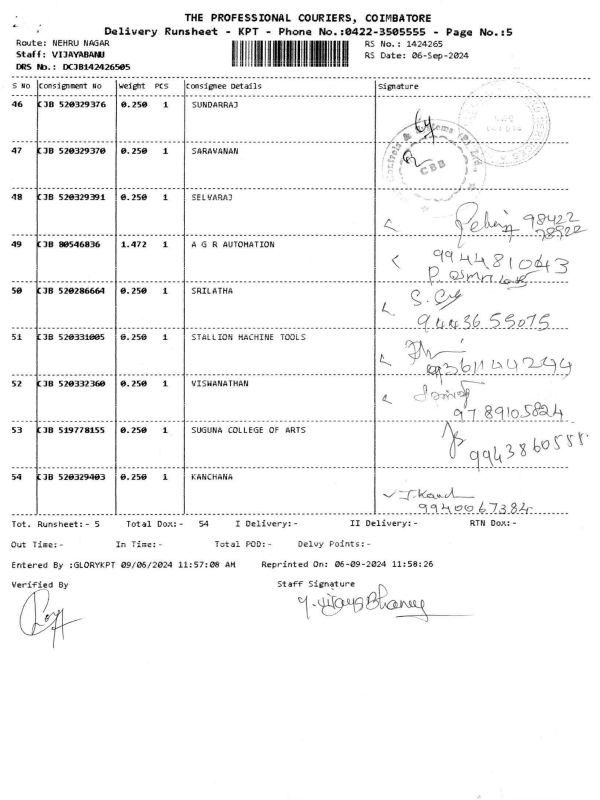 THE PROFESSIONAL COURIERS, COIMBATORE
Delivery Runsheet - KPT - Phone No.:0422-3505555 - Page No.:5
Route: NEHRU NAGAR RS No.: 1424265
Staff: VIJAYABANU RS Date: 06-Sep-2024
DRS No.: DCJB142426505
S No Consignment No Weight PCS Consignee Details Signature
46 CJB 520329376 0.250 1 SUNDARRAJ
47 CJB 520329370 0.250 1 SARAVANAN
CBB
48 CJB 520329391 0.250 1 SELVARAJ
98422
49 CJB 80546836 1.472 1 A G R AUTOMATION
9944481043
50 CJB 520286664 0.250 1 SRILATHA
9443655075
51 CJB 520331005 0.250 1 STALLION MACHINE TOOLS
52 CJB 520332360 0.250 1 VISWANATHAN
9789105824
53 CJB 519778155 0.250 1 SUGUNA COLLEGE OF ARTS
54 CJB 520329403 0.250 1 KANCHANA
9940067384
Tot. Runsheet:- 5 Total Dox:- 54 I Delivery:- II Delivery:- RTN Dox:-
Out Time:- In Time:- Total POD:- Delvy Points:-
Entered By :GLORYKPT 09/06/2024 11:57:08 AM Reprinted On: 06-09-2024 11:58:26
Verified By Staff Signature